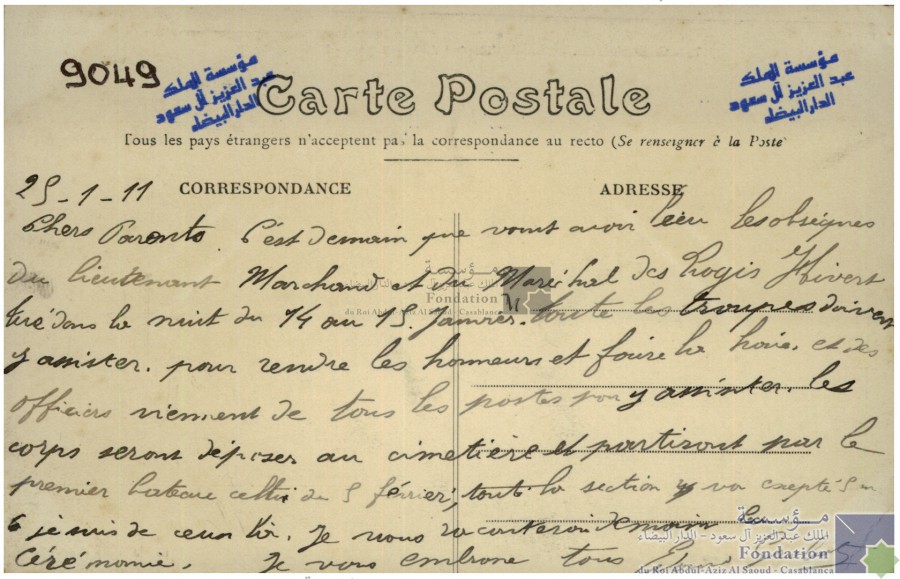 9049
مؤسسة الملك
عبد العزيز آل سعود
الدار البيضاء
Carte Postale
مؤسسة الملك
عبد العزيز آل سعود
الدار البيضاء
Tous les pays étrangers n'acceptent pas la correspondance au recto (Se renseigner à la Poste)
25-1-11 CORRESPONDANCE ADRESSE
Chers Parents. C'est demain que vont avoir lieu les obsèques
du lieutenant Marchand et du Maréchal des Logis Hivert
tué dans la nuit du 14 au 15 Janvier. toute les troupes doivent
y assister. pour rendre les honneurs et faire la haie. et des
officiers viennent de tous les postes pour y assister. les
corps seront déposes au cimetière et partiront par le
premier bateau celui du 5 février, toute la section y va excepté 5 ou
6 je suis de ceux là. Je vous raconterai demain la
Cérémonie. Je vous embrasse tous
مؤسسة
الملك عبد العزيز آل سعود - الدار البيضاء
Fondation
du Roi Abdul-Aziz Al Saoud - Casablanca
مؤسسة
الملك عبد العزيز آل سعود - الدار البيضاء
Fondation
du Roi Abdul-Aziz Al Saoud - Casablanca